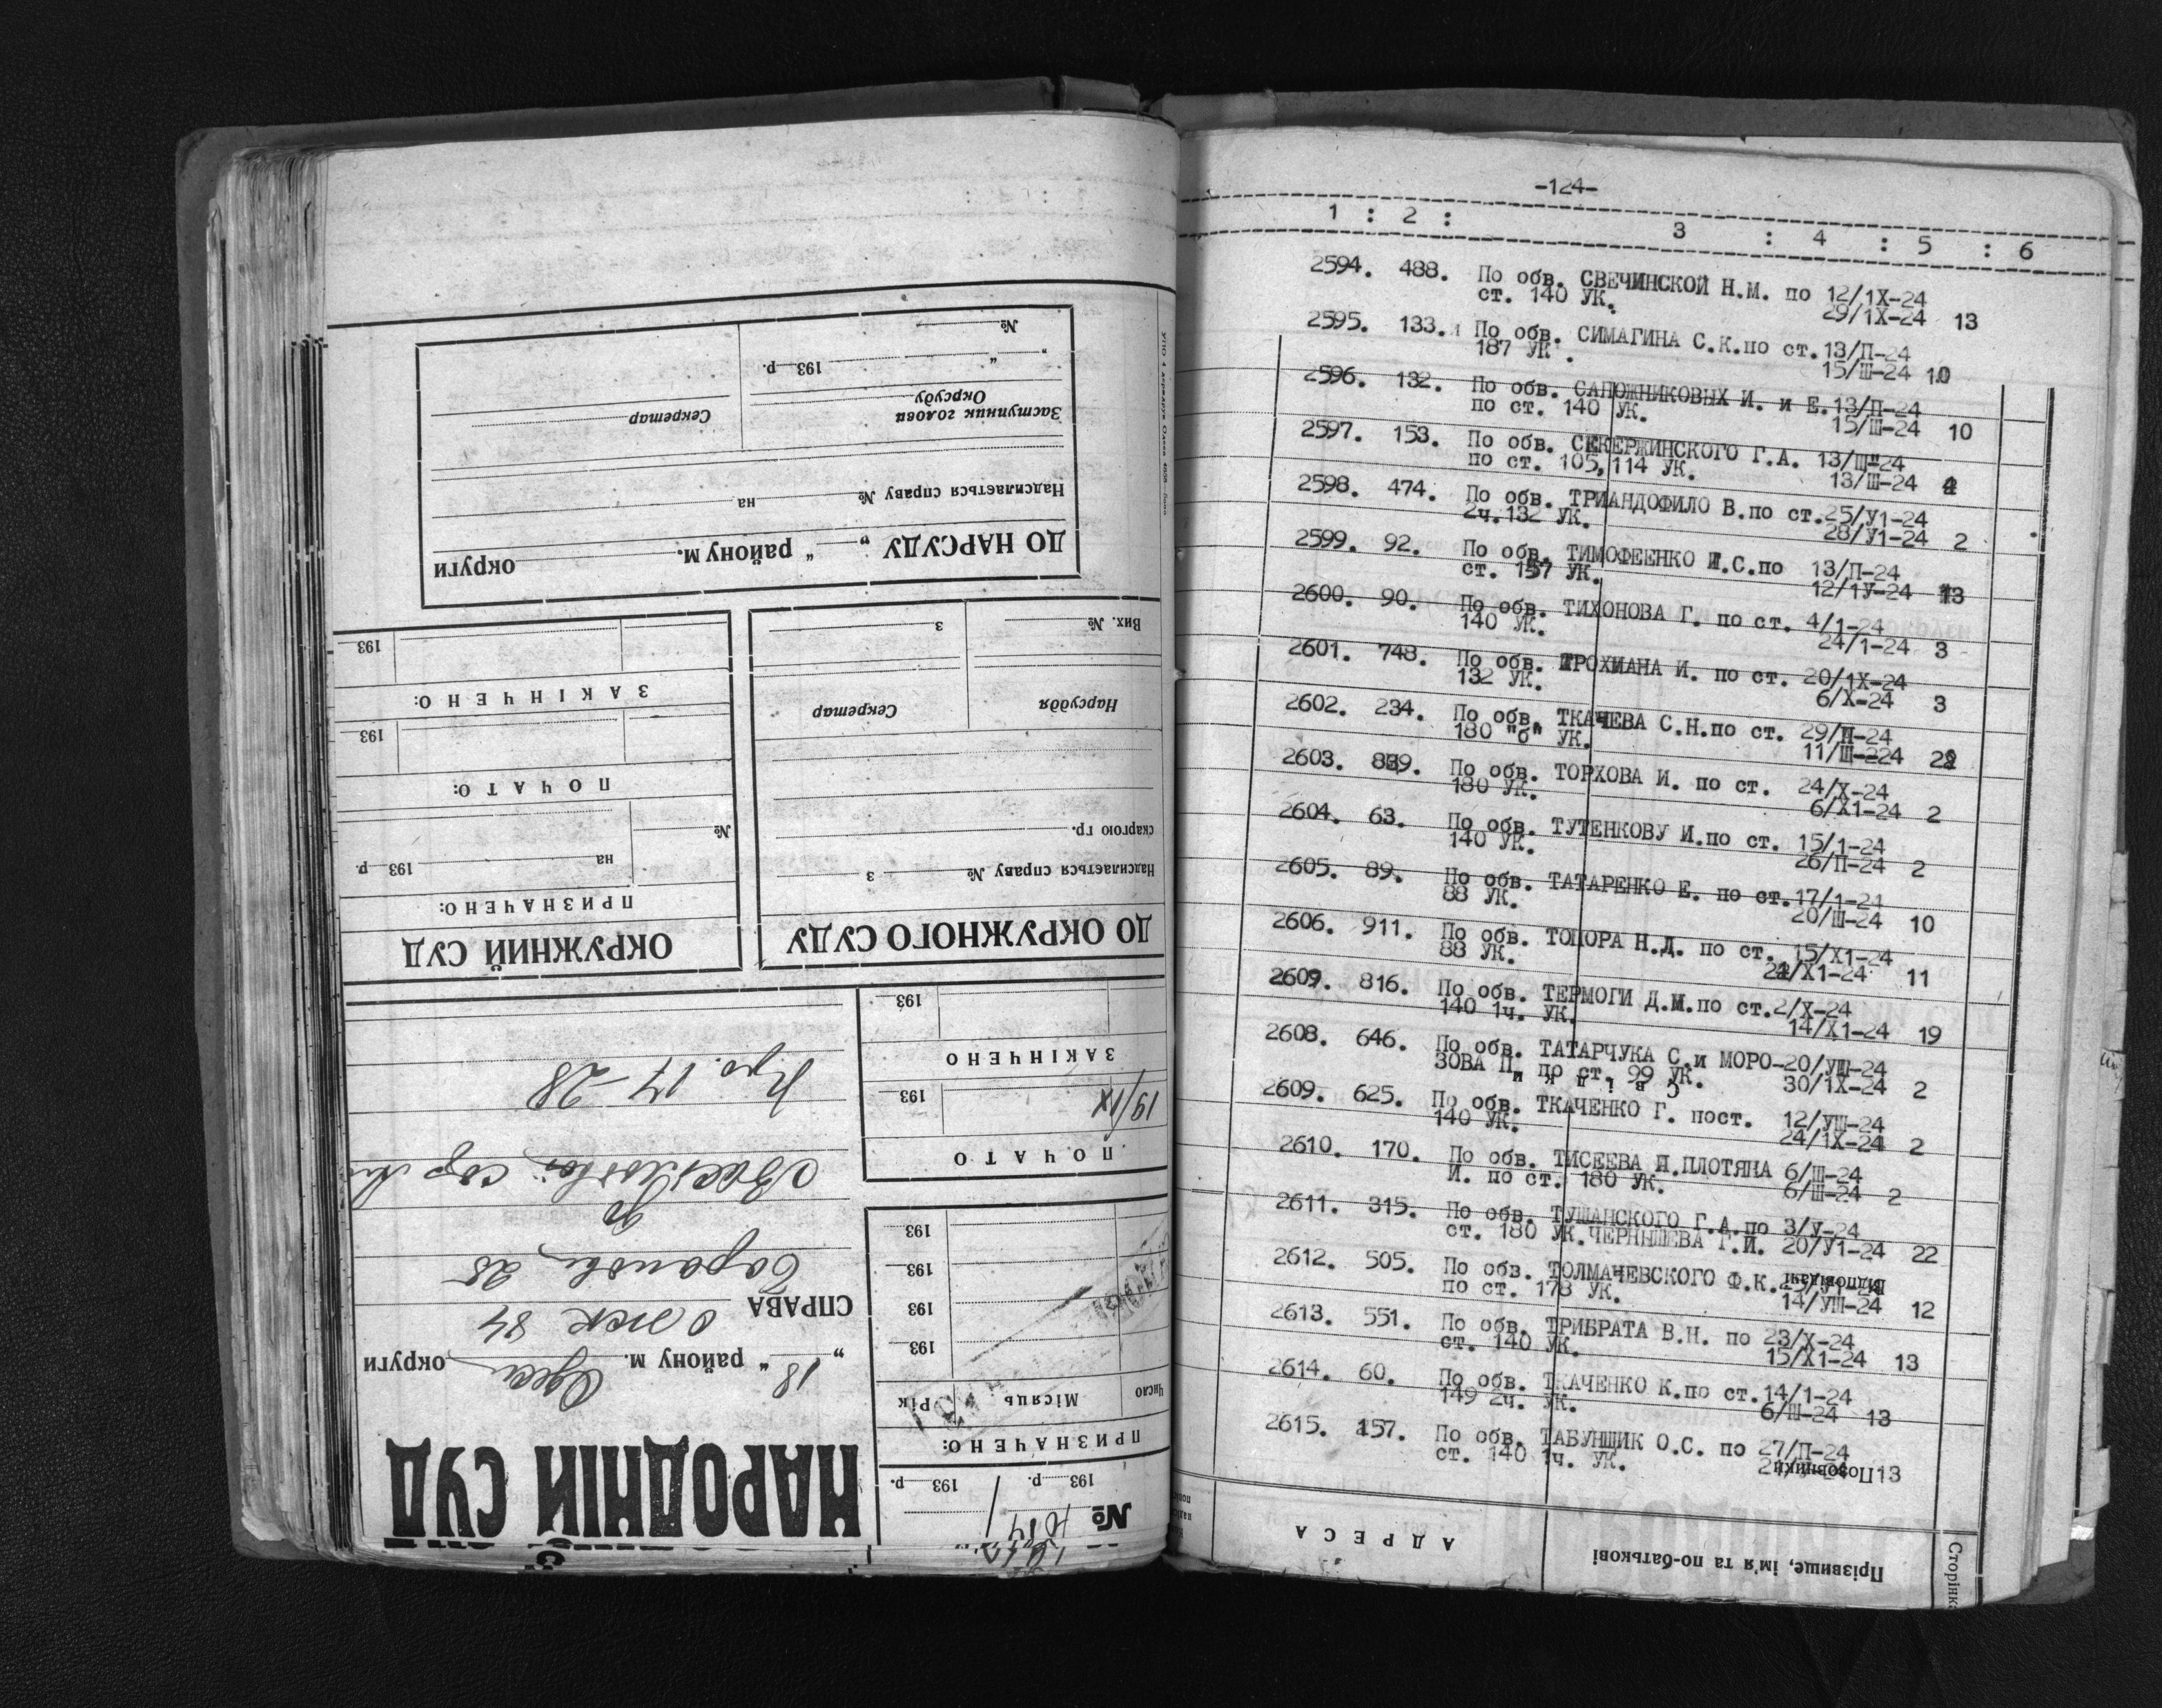 НАРОДНІЙ СУД
„18“ району м. Одеси округи
СПРАВА
О ЖСК 84
№
193 р. 193 р.
ПРИЗНАЧЕНО:
Число Місяць Рік
193
193
193
193
ПОЧАТО
19/IX 193
ЗАКІНЧЕНО
193
ДО ОКРУЖНОГО СУДУ
Надсилається справу № з
скаргою гр.
Нарсуддя Секретар
Вих. № з
ОКРУЖНИЙ СУД
ПРИЗНАЧЕНО:
на 193 р.
№
ПОЧАТО:
193
ЗАКІНЧЕНО:
193
ДО НАРСУДУ „ “ району м. округи
Надсилається справу № на
Заступник голови
Окрсуду
Секретар
„ “ 193 р.
№
-124-
1 : 2 : 3 : 4 : 5 : 6
2594. 488. По обв. СВЕЧИНСКОЙ Н.М. по 12/1Х-24
ст. 140 УК. 29/1Х-24 13
2595. 133. По обв. СИМАГИНА С.К.по ст.13/П-24
187 УК. 15/Ш-24 10
2596. 132. По обв. САПОЖНИКОВЫХ И. и Е.13/П-24
по ст. 140 УК. 15/Ш-24 10
2597. 153. По обв. СЕКЕРЖИНСКОГО Г.А. 13/Ш-24
по ст. 105,114 УК. 13/Ш-24 4
2598. 474. По обв. ТРИАНДОФИЛО В.по ст.25/У1-24
2ч.132 УК. 28/У1-24 2
2599. 92. По обв. ТИМОФЕЕНКО И.С.по 13/П-24
ст. 157 УК. 12/1У-24 13
2600. 90. По обв. ТИХОНОВА Г. по ст. 4/1-24
140 УК. 24/1-24 3
2601. 748. По обв. ТРОХМАНА И. по ст. 20/1Х-24
132 УК. 6/Х-24 3
2602. 234. По обв. ТКАЧЕВА С.Н.по ст. 29/П-24
180 "б" УК. 11/Ш-24 22
2603. 839. По обв. ТОРХОВА И. по ст. 24/Х-24
180 УК. 6/Х1-24 2
2604. 63. По обв. ТУТЕНКОВУ И.по ст. 15/1-24
140 УК. 26/П-24 2
2605. 89. По обв. ТАТАРЕНКО Е. по ст.17/1-24
88 УК. 20/Ш-24 10
2606. 911. По обв. ТОПОРА Н.Д. по ст. 15/Х1-24
88 УК. 24/Х1-24 11
2609. 816. По обв. ТЕРМОГИ Д.М.по ст.2/Х-24
140 1ч. УК. 14/Х1-24 19
2608. 646. По обв. ТАТАРЧУКА С.и МОРО-20/УШ-24
ЗОВА П. по ст. 99 УК. 30/1Х-24 2
Свідки
2609. 625. По обв. ТКАЧЕНКО Г. пост. 12/УШ-24
140 УК. 24/1Х-24 2
2610. 170. По обв. ТИСЕЕВА И.ПЛОТЯНА 6/Ш-24
И. по ст. 180 УК. 6/Ш-24 2
2611. 315. По обв. ТУШАНСКОГО Г.А.по 3/У-24
ст. 180 УК.ЧЕРНЫШЕВА Г.И. 20/У1-24 22
2612. 505. По обв. ТОЛМАЧЕВСКОГО Ф.К.
Відповідачі
по ст. 178 УК. 14/УШ-24 12
2613. 551. По обв. ТРИБРАТА В.Н. по 23/Х-24
ст. 140 УК. 15/Х1-24 13
2614. 60. По обв. ТКАЧЕНКО К.по ст.14/1-24
149 2ч. УК. 6/Ш-24 13
2615. 157. По обв. ТАБУНЩИК О.С. по 27/П-24
ст. 140 1ч. УК. 13
Позовники
Сторінка
Прізвище, ім'я та по-батькові
АДРЕСА